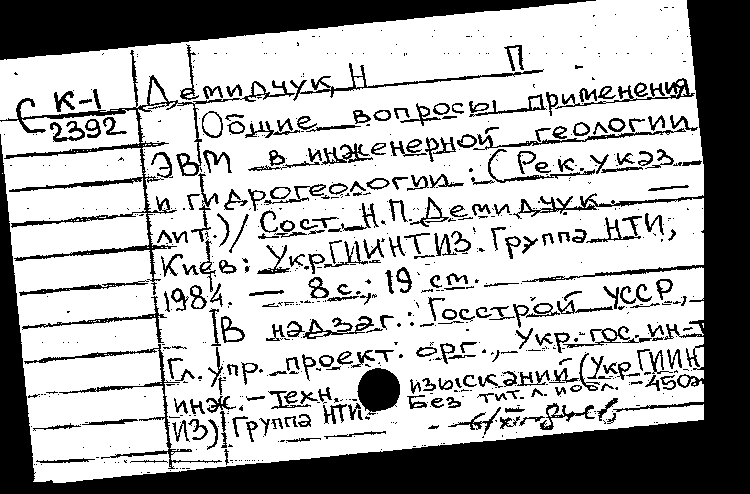 Демидчук, Н П
С К-1
2392
Общие вопросы применения
ЭВМ в инженерной геологии
и гидрогеологии: (Рек. указ
лит.) / Сост. Н.П. Демидчук. —
Киев: УкрГИИНТИЗ. Группа НТИ,
1984. — 8 с.; 19 см.
В надзаг.: Госстрой УССР,
Гл. упр. проект. орг., Укр. гос. ин-т
инж.-техн. изысканий (УкрГИИНТ
ИЗ) Группа НТИ. Без тит. л. и обл. - 450э